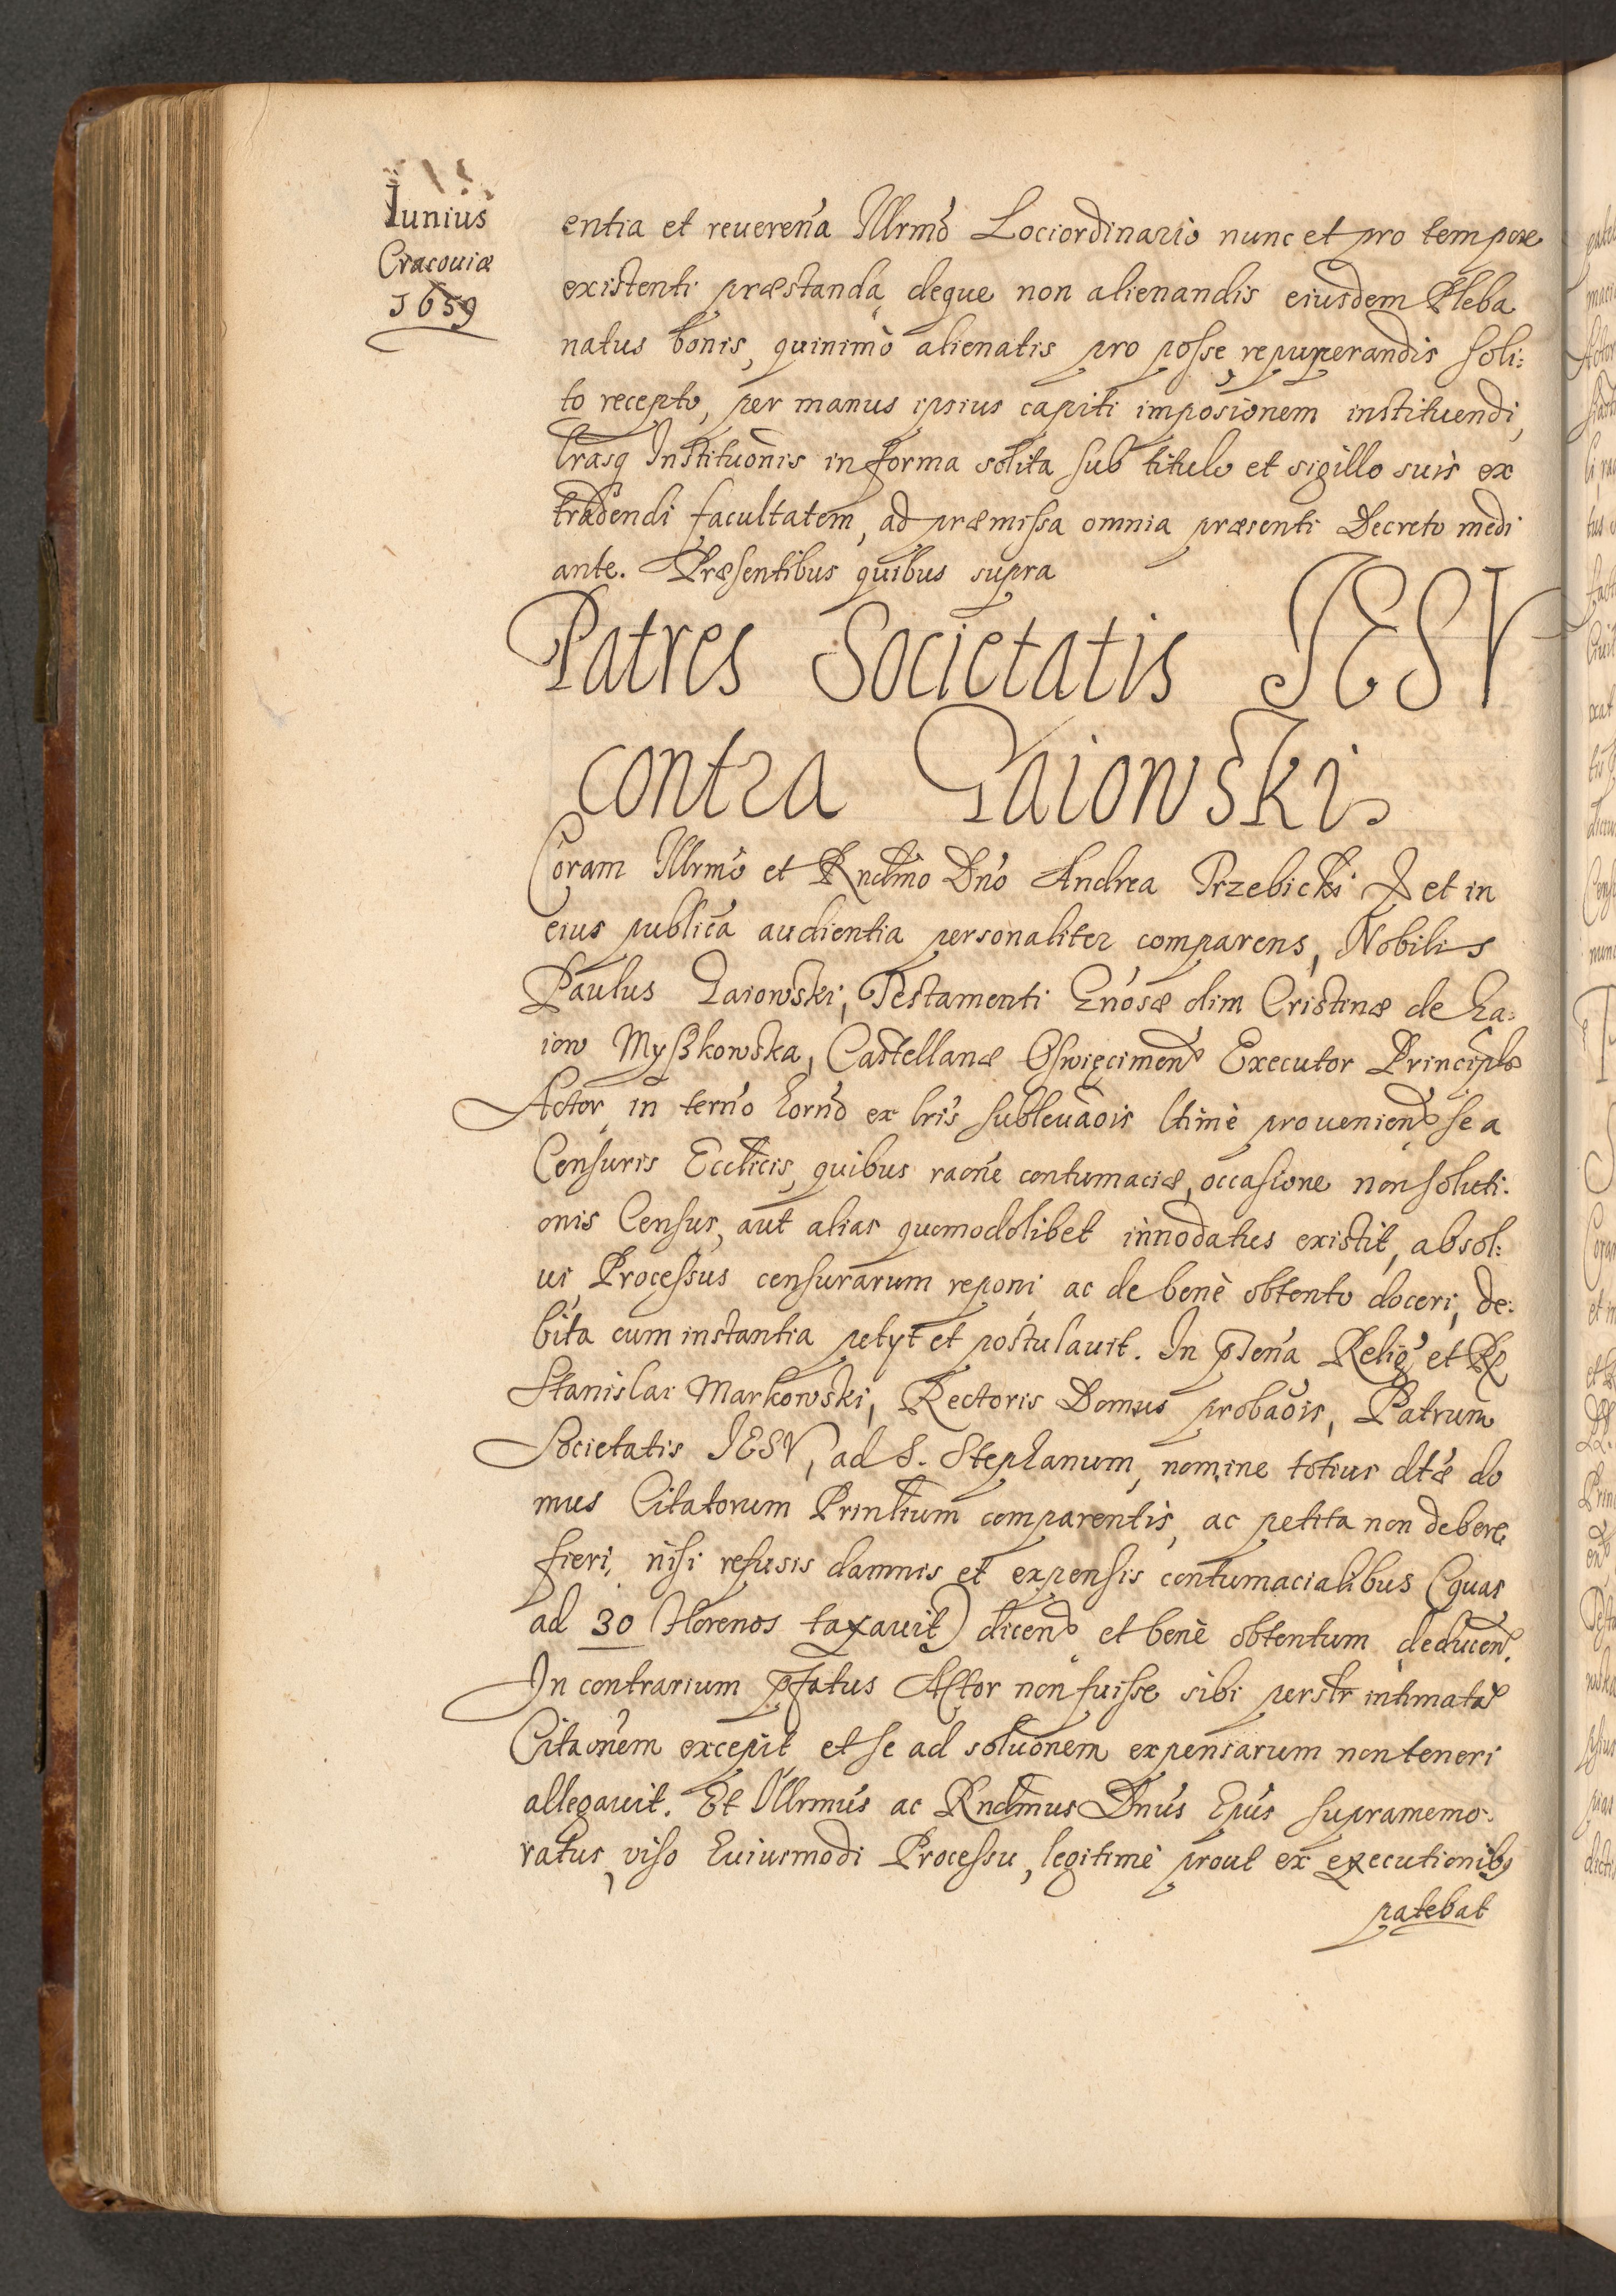 Iunius
Cracouiæ
1659
entia et reuerẽna Illrmo Lociordinario nunc et pro tempore
existenti præstanda deque non alienandis eiusdem Pleba
natus bonis, quinimò alienatis pro posse repuperandis soli:
to recepto, per manus ipsius capiti imposionem instituendi,
lrasq Instituonis in forma solita sub titulo et sigillo suis ex
tradendi facultatem, ad præmissa omnia præsenti Decreto medi
ante. Præsentibus quibus supra
Patres Societatis IESV
contra Gaiowski
Coram Illrmo et Rndmo Dno Andrea Przebicki et in
eius publica audientia personaliter comparens, Nobilis
Paulus Gaiowski, Testamenti Gnosæ olim Cristinæ de Ga:
iow Myßkowska, Castellanæ Oswięcimen Executor Principls
Actor in termo horno ex lris subleuaois ltimè prouenien se a
Censuris Ecclicis, quibus raone contumaciæ, occasione non soluti:
onis Census, aut alias quomodolibet innodatus existit, absol:
ui, Processus censurarum reponi ac de benè obtento doceri, de:
bita cum instantia petyt et postulauit. In pñtia Relig et Rp
Stanislai Markowski, Rectoris Domus probaois, Patrum
Societatis IESV, ad S. Stephanum, nomine totius dtæ do
mus Citatorum Prinlium comparentis, ac petita non debere
fieri, nisi refusis damnis et expensis contumacialibus (quas
ad 30 florenos taxauit) dicen et benè obtentum deducen.
In contrarium pfatus Actor non fuisse sibi perslr intimatã
Citaonem excepit et se ad soluonem expensarum non teneri
allegauit. Et Illrmus ac Rndmus Dnus Epus supramemo:
ratus, viso huiusmodi Processu, legitimè prout ex executionibs
patebat